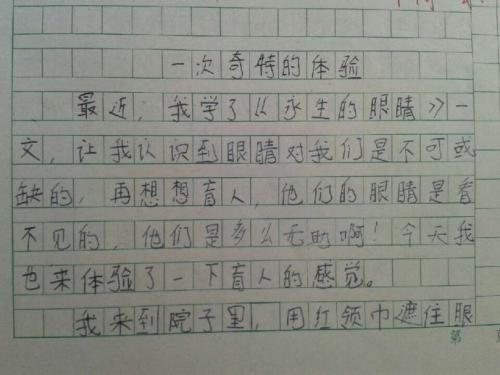 一次奇特的体验
最近，我学了《永生的眼睛》一
文，让我认识到眼睛对我们是不可或
缺的，再想想盲人，他们的眼睛是看
不见的，他们是多么无助啊！今天我
也来体验了一下盲人的感觉。
我来到院子里，用红领巾遮住眼
第